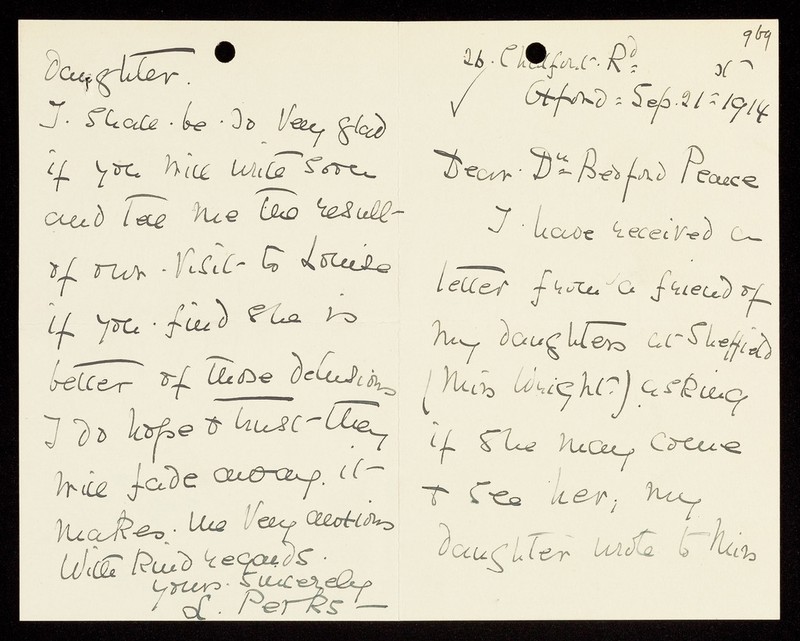 969
26. Chalfont. Rd
Oxford = Sep. 21st 1914
Dear Dr Bedford Pearce
I have received a
letter from a friend of
my daughters at Sheffield
(Miss Wright) asking
if she may come
& see her, my
daughter wrote to Miss
daughter.
I. shall be so very glad
if you will write soon
and tell me the result
of our visit to Louise
if you find she is
better of those delusions
I do hope & trust they
will fade away. it
makes me very anxious
With kind regards.
yours sincerely
L. Perks